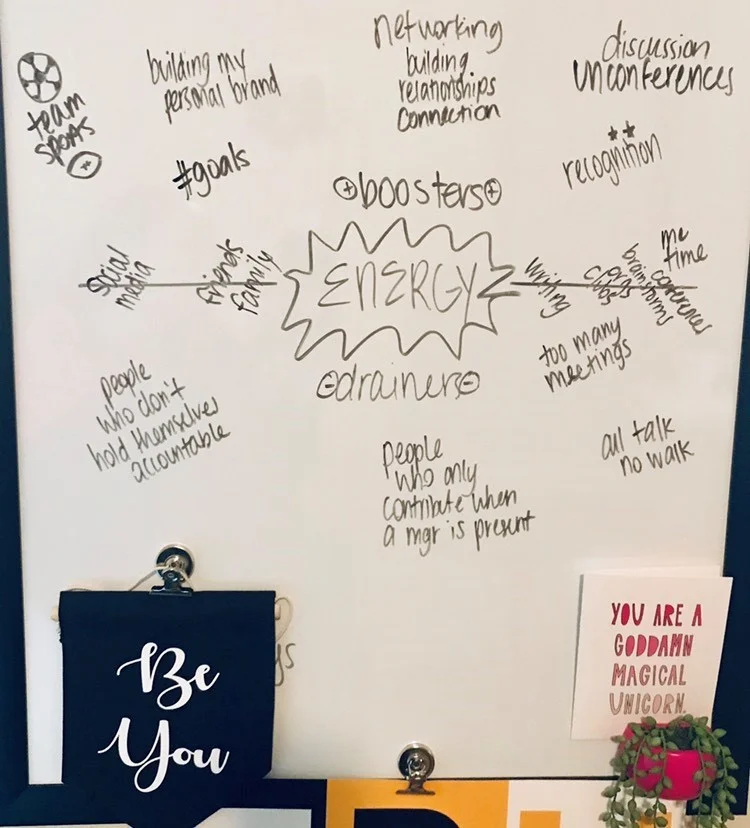 team
sports
building my
personal brand
#goals
networking
building
relationships
connection
discussion
unconferences
recognition
boosters
social
media
friends
family
ENERGY
writing
clubs
orgs
brainstorms
conferences
me
time
drainers
too many
meetings
people
who don't
hold themselves
accountable
people
who only
contribute when
a mgr is present
all talk
no walk
Be
You
YOU ARE A
GODDAMN
MAGICAL
UNICORN.